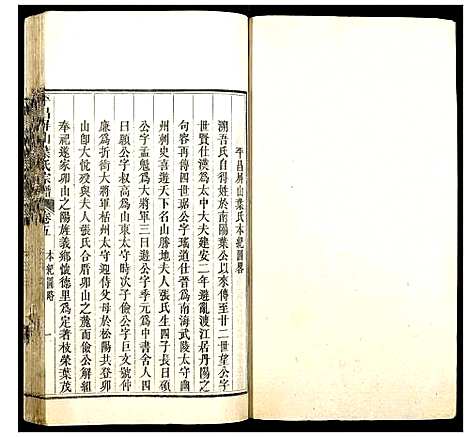 平昌屏山葉氏本紀圖畧
溯吾氏自得姓於南陽葉公以來傳至廿二世望公字
世賢仕漢為太中大夫建安二年避亂渡江居丹陽之
句容再傳四世琚公字瑤道仕晉為南海武陵太守幽
州刺史喜遊天下名山勝地夫人張氏生四子長曰碩
公字孟魁為大將軍三曰遊公字季元為中書舍人四
曰願公字叔高為山東太守時次子儉公字巨文號仲
廉為折衝大將軍栝州太守迎侍父母於松陽共登卯
山即大悅歿與夫人張氏合厝卯山之麓而儉公解組
奉祀遂家卯山之陽旌義鄉懷德里為定著枝榮葉茂
平昌屏山葉氏宗譜 卷五 本紀圖略 一